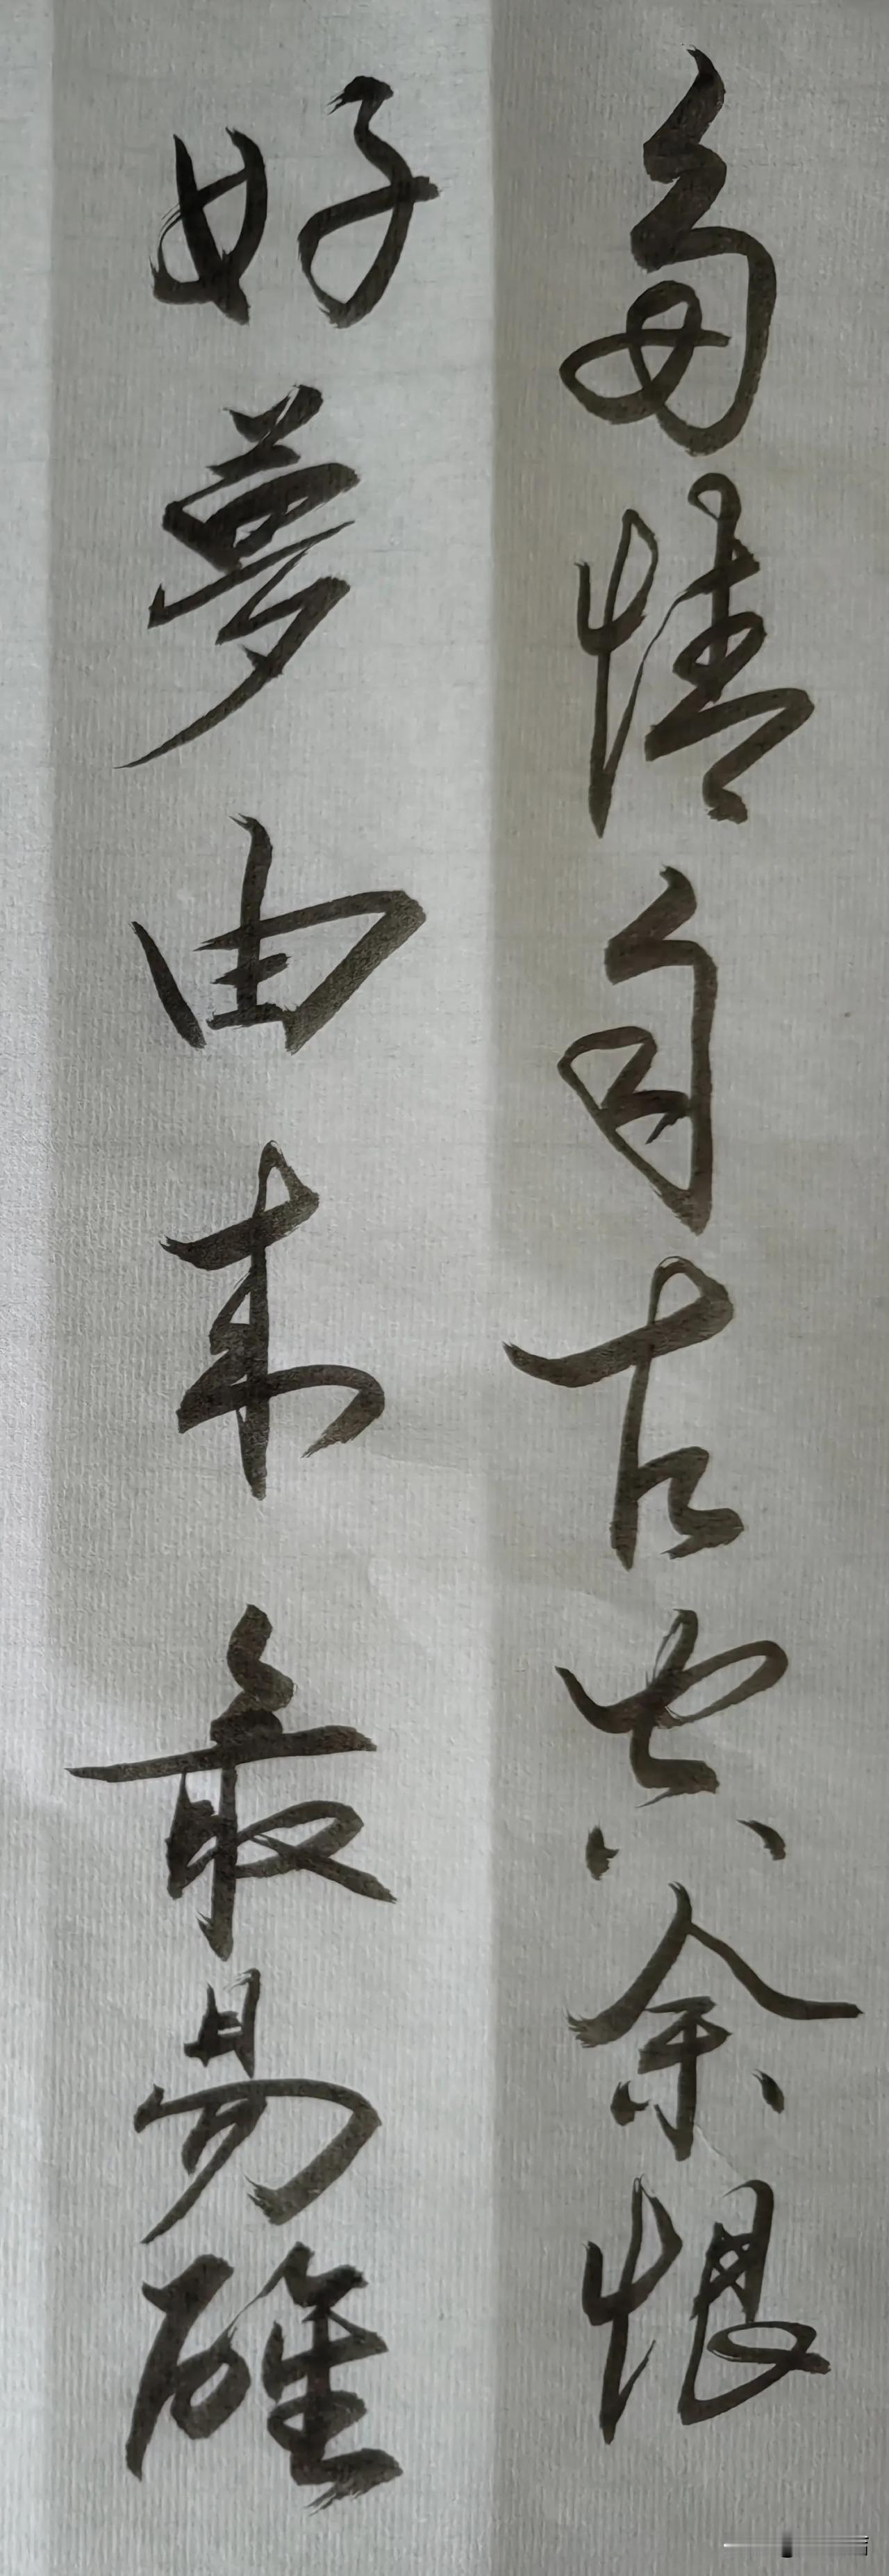 多情自古空余恨
好夢由来最易醒